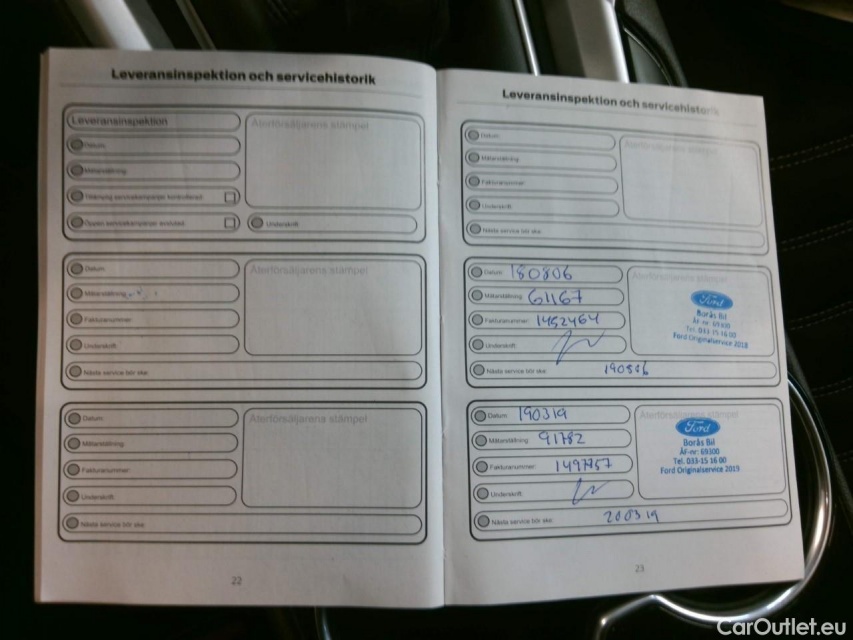 Leveransinspektion och servicehistorik
Leveransinspektion
Återförsäljarens stämpel
Datum:
Mätarställning:
Öppen servicekampanj: avslutad:
Underskrift:
Datum:
Återförsäljarens stämpel
Mätarställning:
Fakturanummer:
Underskrift:
Nästa service bör ske:
Datum:
Återförsäljarens stämpel
Mätarställning:
Fakturanummer:
Underskrift:
Nästa service bör ske:
22
Leveransinspektion och servicehistorik
Datum:
Återförsäljarens stämpel
Mätarställning:
Fakturanummer:
Underskrift:
Nästa service bör ske:
Datum: 180806
Återförsäljarens stämpel
Mätarställning: 61167
Fakturanummer: 1452464
Underskrift:
Nästa service bör ske: 190806
Ford
Borås Bil
ÅF-nr: 69300
Tel. 033-15 16 00
Ford Originalservice 2018
Datum: 190319
Återförsäljarens stämpel
Mätarställning: 91782
Fakturanummer: 1497757
Underskrift:
Nästa service bör ske: 200319
Ford
Borås Bil
ÅF-nr: 69300
Tel. 033-15 16 00
Ford Originalservice 2019
23
CarOutlet.eu